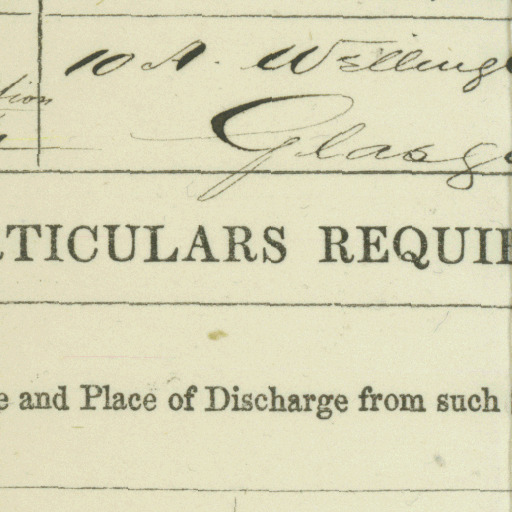 10 A. Welling
tion
Glasg
RTICULARS REQUIR
e and Place of Discharge from such